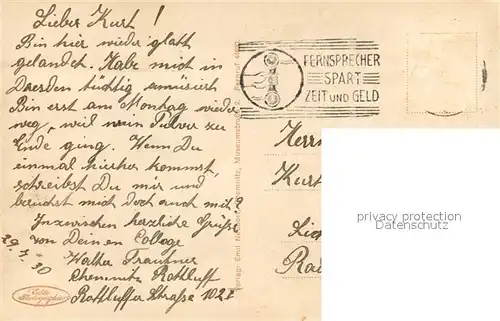 Lieber Kurt!
Bin hier wieder glatt
gelandet. Habe mich in
Dresden tüchtig amüsiert
Bin erst am Montag wieder
weg, weil mein Pulver zu
Ende ging. Wenn Du
einmal hierher kommst,
schreibst Du mir und
besuchst mich doch auch mit?
Inzwischen herzliche Grüße
von Deinen Colloge
Walter
Chemnitz Rottluff
Rottluffer Straße 102
29. 30
FERNSPRECHER
SPART
ZEIT UND GELD
Herrn
Kurt
privacy protection
Datenschutz
Verlag: Emil Chemnitz, Museumstr.
Echte
Photographie